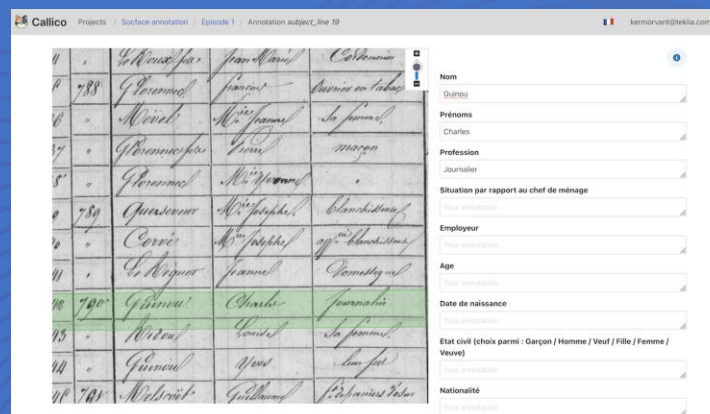 Callico Projects / Socface annotation / Episode 1 / Annotation subject_line 19
kermorvant@teklia.com
788 Glorennec françois Ouvrier en tabac
" Mével Mie Jeanne Sa femme
Glorennec fils Pierre maçon
" Glorennec Mie Yvonne "
789 Querseveur Mie Josephe blanchisseuse
" Corvé Mie Josephe
Jeanne Domestique
790 Guinou Charles Journalier
43 " Louise Sa femme
44 " Guinou Yves leur fils
791 Guillaume
Nom
Guinou
Prénoms
Charles
Profession
Journalier
Situation par rapport au chef de ménage
Your annotation
Employeur
Your annotation
Age
Your annotation
Date de naissance
Your annotation
Etat civil (choix parmi : Garçon / Homme / Veuf / Fille / Femme /
Veuve)
Your annotation
Nationalité
Your annotation